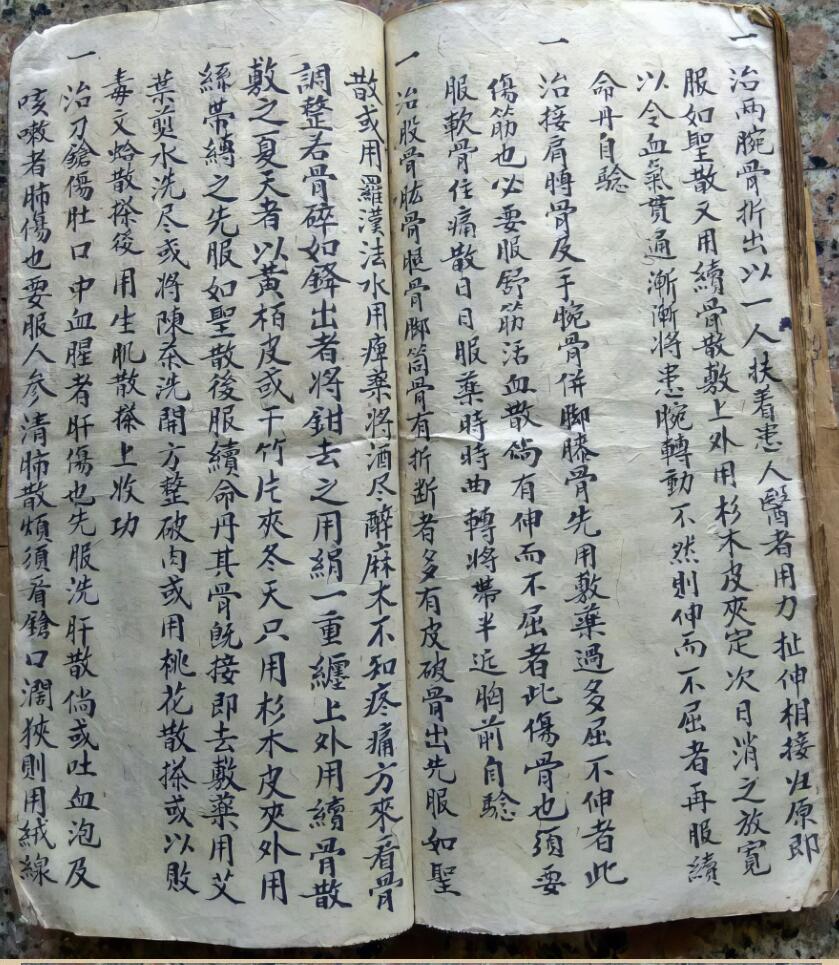 一治两腕骨折出以一人扶着患人醫者用力扯伸相接归原即
服如聖散又用續骨散敷上外用杉木皮夾定次日消之放寬
以令血氣貫通漸漸將患腕轉動不然則伸而不屈者再服續
命丹自驗
一治接肩膊骨及手腕骨併脚膝骨先用敷藥過多屈不伸者此
傷筋也必要服舒筋活血散倘有伸而不屈者此傷骨也須要
服軟骨住痛散日日服藥時時曲轉將帶半近胸前自驗
一治股骨肱骨腿骨脚筒骨有折断者多有皮破骨出先服如聖
散或用羅漢法水用痺藥將酒尽醉麻木不知疼痛方來看骨
調整若骨碎如鋒出者將鉗去之用絹一重纏上外用續骨散
敷之夏天者以黃栢皮或干竹片夾冬天只用杉木皮夾外用
絲带縛之先服如聖散後服續命丹其骨既接即去敷藥用艾
葉煎水洗尽或將陳茶洗開方整破肉或用桃花散搽或以敗
毒文蛤散搽後用生肌散搽上收功
一治刀鎗傷肚口中血腥者肝傷也先服洗肝散倘或吐血泡及
咳嗽者肺傷也要服人参清肺散煩須看鎗口濶狹則用絨線